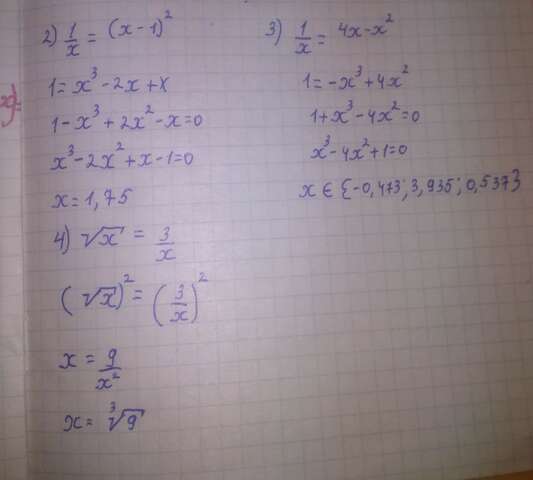 2) 1/x = (x-1)²
1 = x³ - 2x + x
1 - x³ + 2x² - x = 0
x³ - 2x² + x - 1 = 0
x = 1,75
4) √x = 3/x
(√x)² = (3/x)²
x = 9/x²
x = ³√9
3) 1/x = 4x - x²
1 = -x³ + 4x²
1 + x³ - 4x² = 0
x³ - 4x² + 1 = 0
x ∈ {-0,473; 3,935; 0,537}